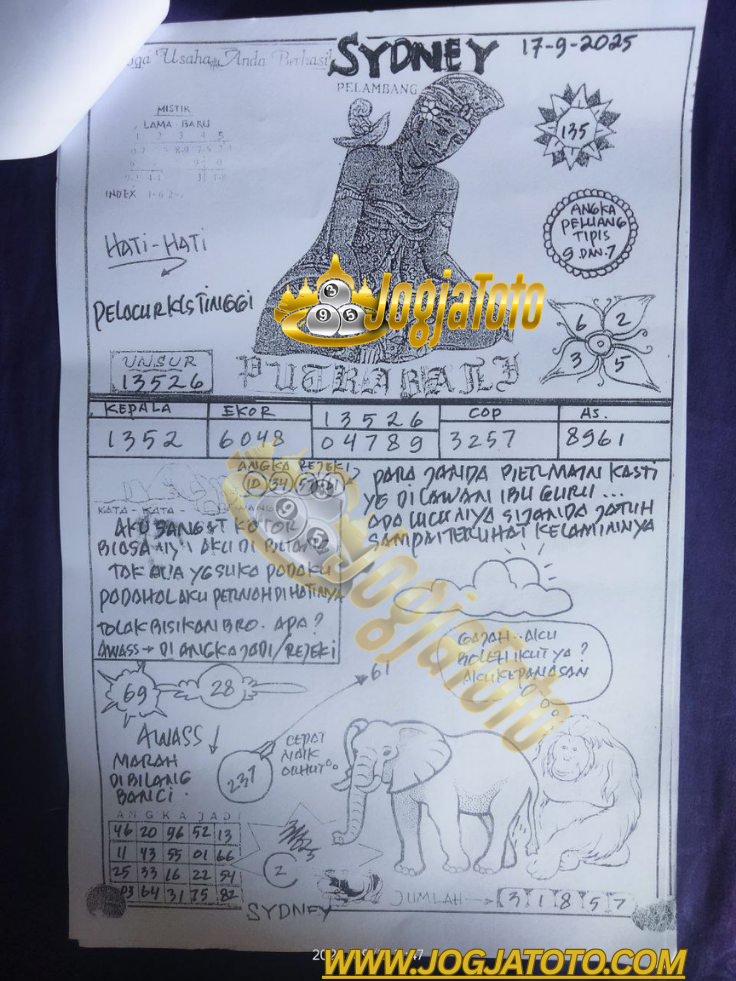 Usaha Anda Berhasil
SYDNEY 17-9-2025
PELAMBANG
MISTIK
LAMA - BARU
1 2 3 4 5
INDEX
135
ANGKA
PELUANG
TIPIS
9 DAN 7
HATI-HATI
6 2
3 5
JogjaToto
UNSUR
13526
PUTRA BALI
KEPALA EKOR 13526 COP AS.
1352 6048 04789 3257 8961
ANGKA REJEKI
KATA - KATA
AKU SANGAT KOTOR
PADAHAL AKU PERNAH DI HATINYA
TOLAK BISIKAN BRO. APA?
AWASS → DI ANGKA JADI/REJEKI
PARA JANDA BERMAIN KASTI
YG DI LAWAN IBU GURU ...
ADA LUCUNYA SI JANDA JATUH
SAMPAI TERLIHAT KELAMINNYA
JogjaToto
GAJAH.. AKU
BOLEH IKUT YA?
AKU KEPANASAN
61
69 28
AWASS ↓
MARAH
DIBILANG
BANCI.
237
CEPAT
NAIK
ANGKA JADI
46 20 96 52 13
11 43 55 01 66
25 33 16 22 54
03 64 31 75 82
2
JUMLAH → 31857
SYDNEY
WWW.JOGJATOTO.COM